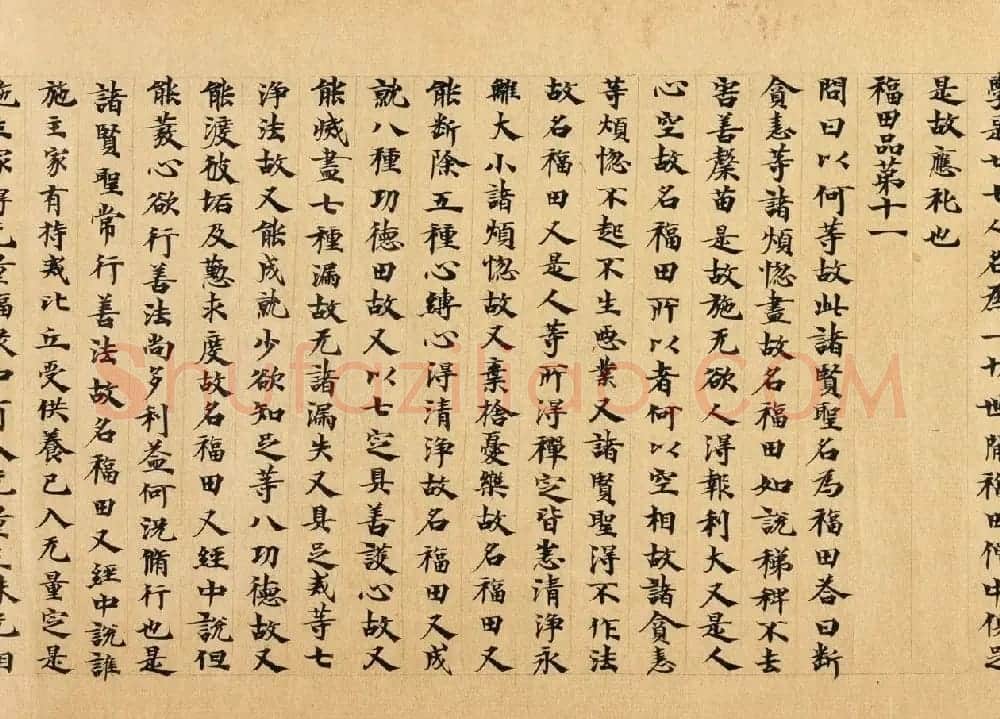 是廿七人名為一切世間福田僧中
是故應礼也
福田品第十一
問曰以何等故此諸賢聖名為福田荅曰斷
貪恚等諸煩惚盡故名福田如說稊稗不去
害善糵苗是故施无欲人得報利大又是人
心空故名福田所以者何以空相故諸貪恚
等煩惚不起不生惡業又諸賢聖得不作法
故名福田又是人等所得禪定皆悉清淨永
離大小諸煩惚故又棄捨憂樂故名福田又
能斷除五種心縛心得清淨故名福田又成
就八種功德田故又以七定具善護心故又
能滅盡七種漏故无諸漏失又具足戒等七
淨法故又能成就少欲知足等八功德故又
能渡彼垢及懃求度故名福田又經中說但
能發心欲行善法尚多利益何況脩行也是
諸賢聖常行善法故名福田又經中說誰
施主家有持戒比丘受供養已入无量定是
施主家得无量福
Shufaziliao.COM